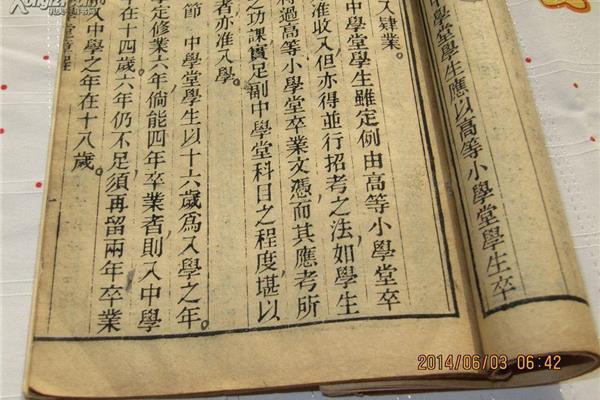 中學堂學生應以高等小學堂學生卒
入肄業。
中學堂學生雖定例由高等小學堂卒
准收入但亦得並行招考之法如學生
過高等小學堂卒業文憑而其應考所
之功課實足副中學堂科目之程度堪以
者亦准入學。
節 中學堂學生以十六歲為入學之年。
學定修業六年倘能四年卒業者則入中學
年在十四歲六年仍不足須再留兩年卒業
入中學之年在十八歲。
堂章程
2014/06/03 06:42